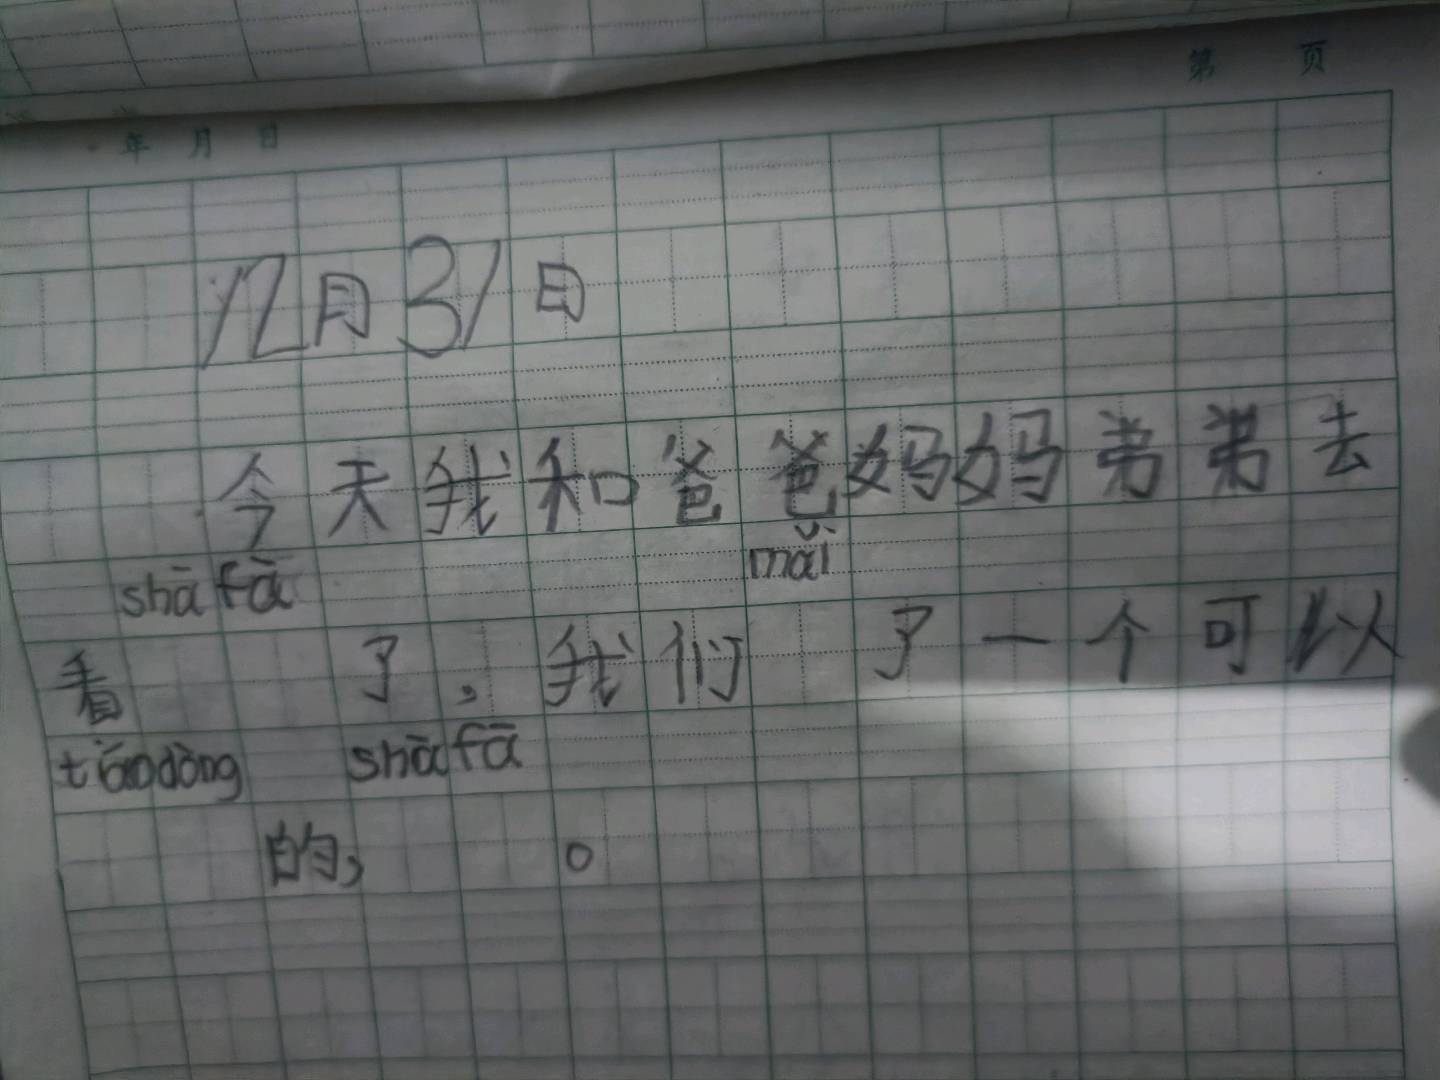 第 页
年 月 日
12月31日
今天我和爸爸妈妈弟弟去
shā fā mǎi
看 了,我们 了一个可以
tiáodòng shāfā
的, 。